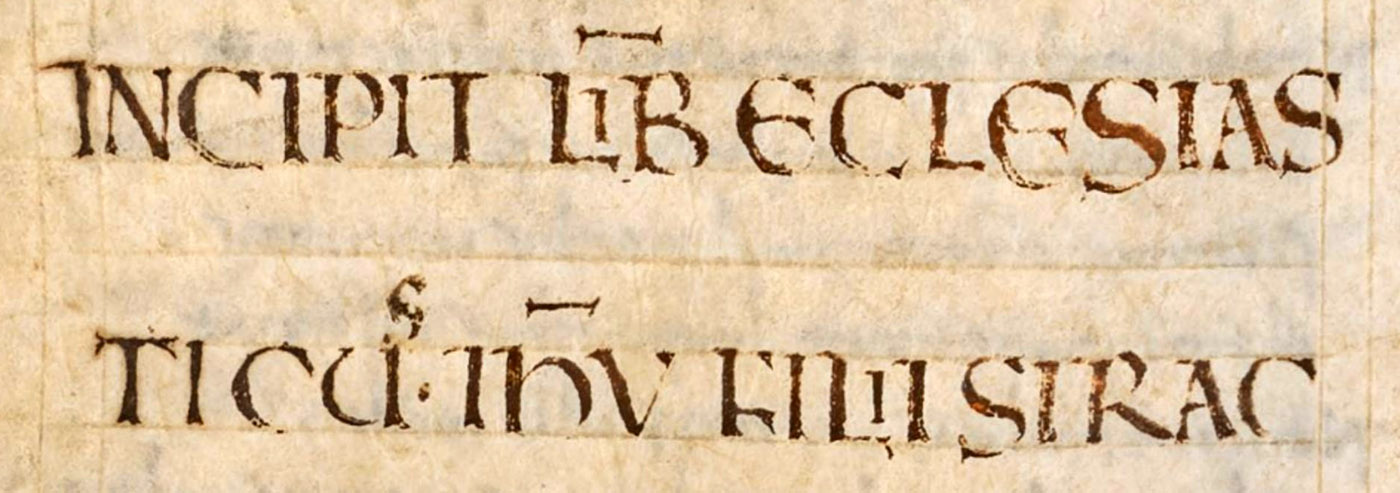 INCIPIT LIB̅ ECLESIAS
TICUS· IHV̅ FILII SIRAC